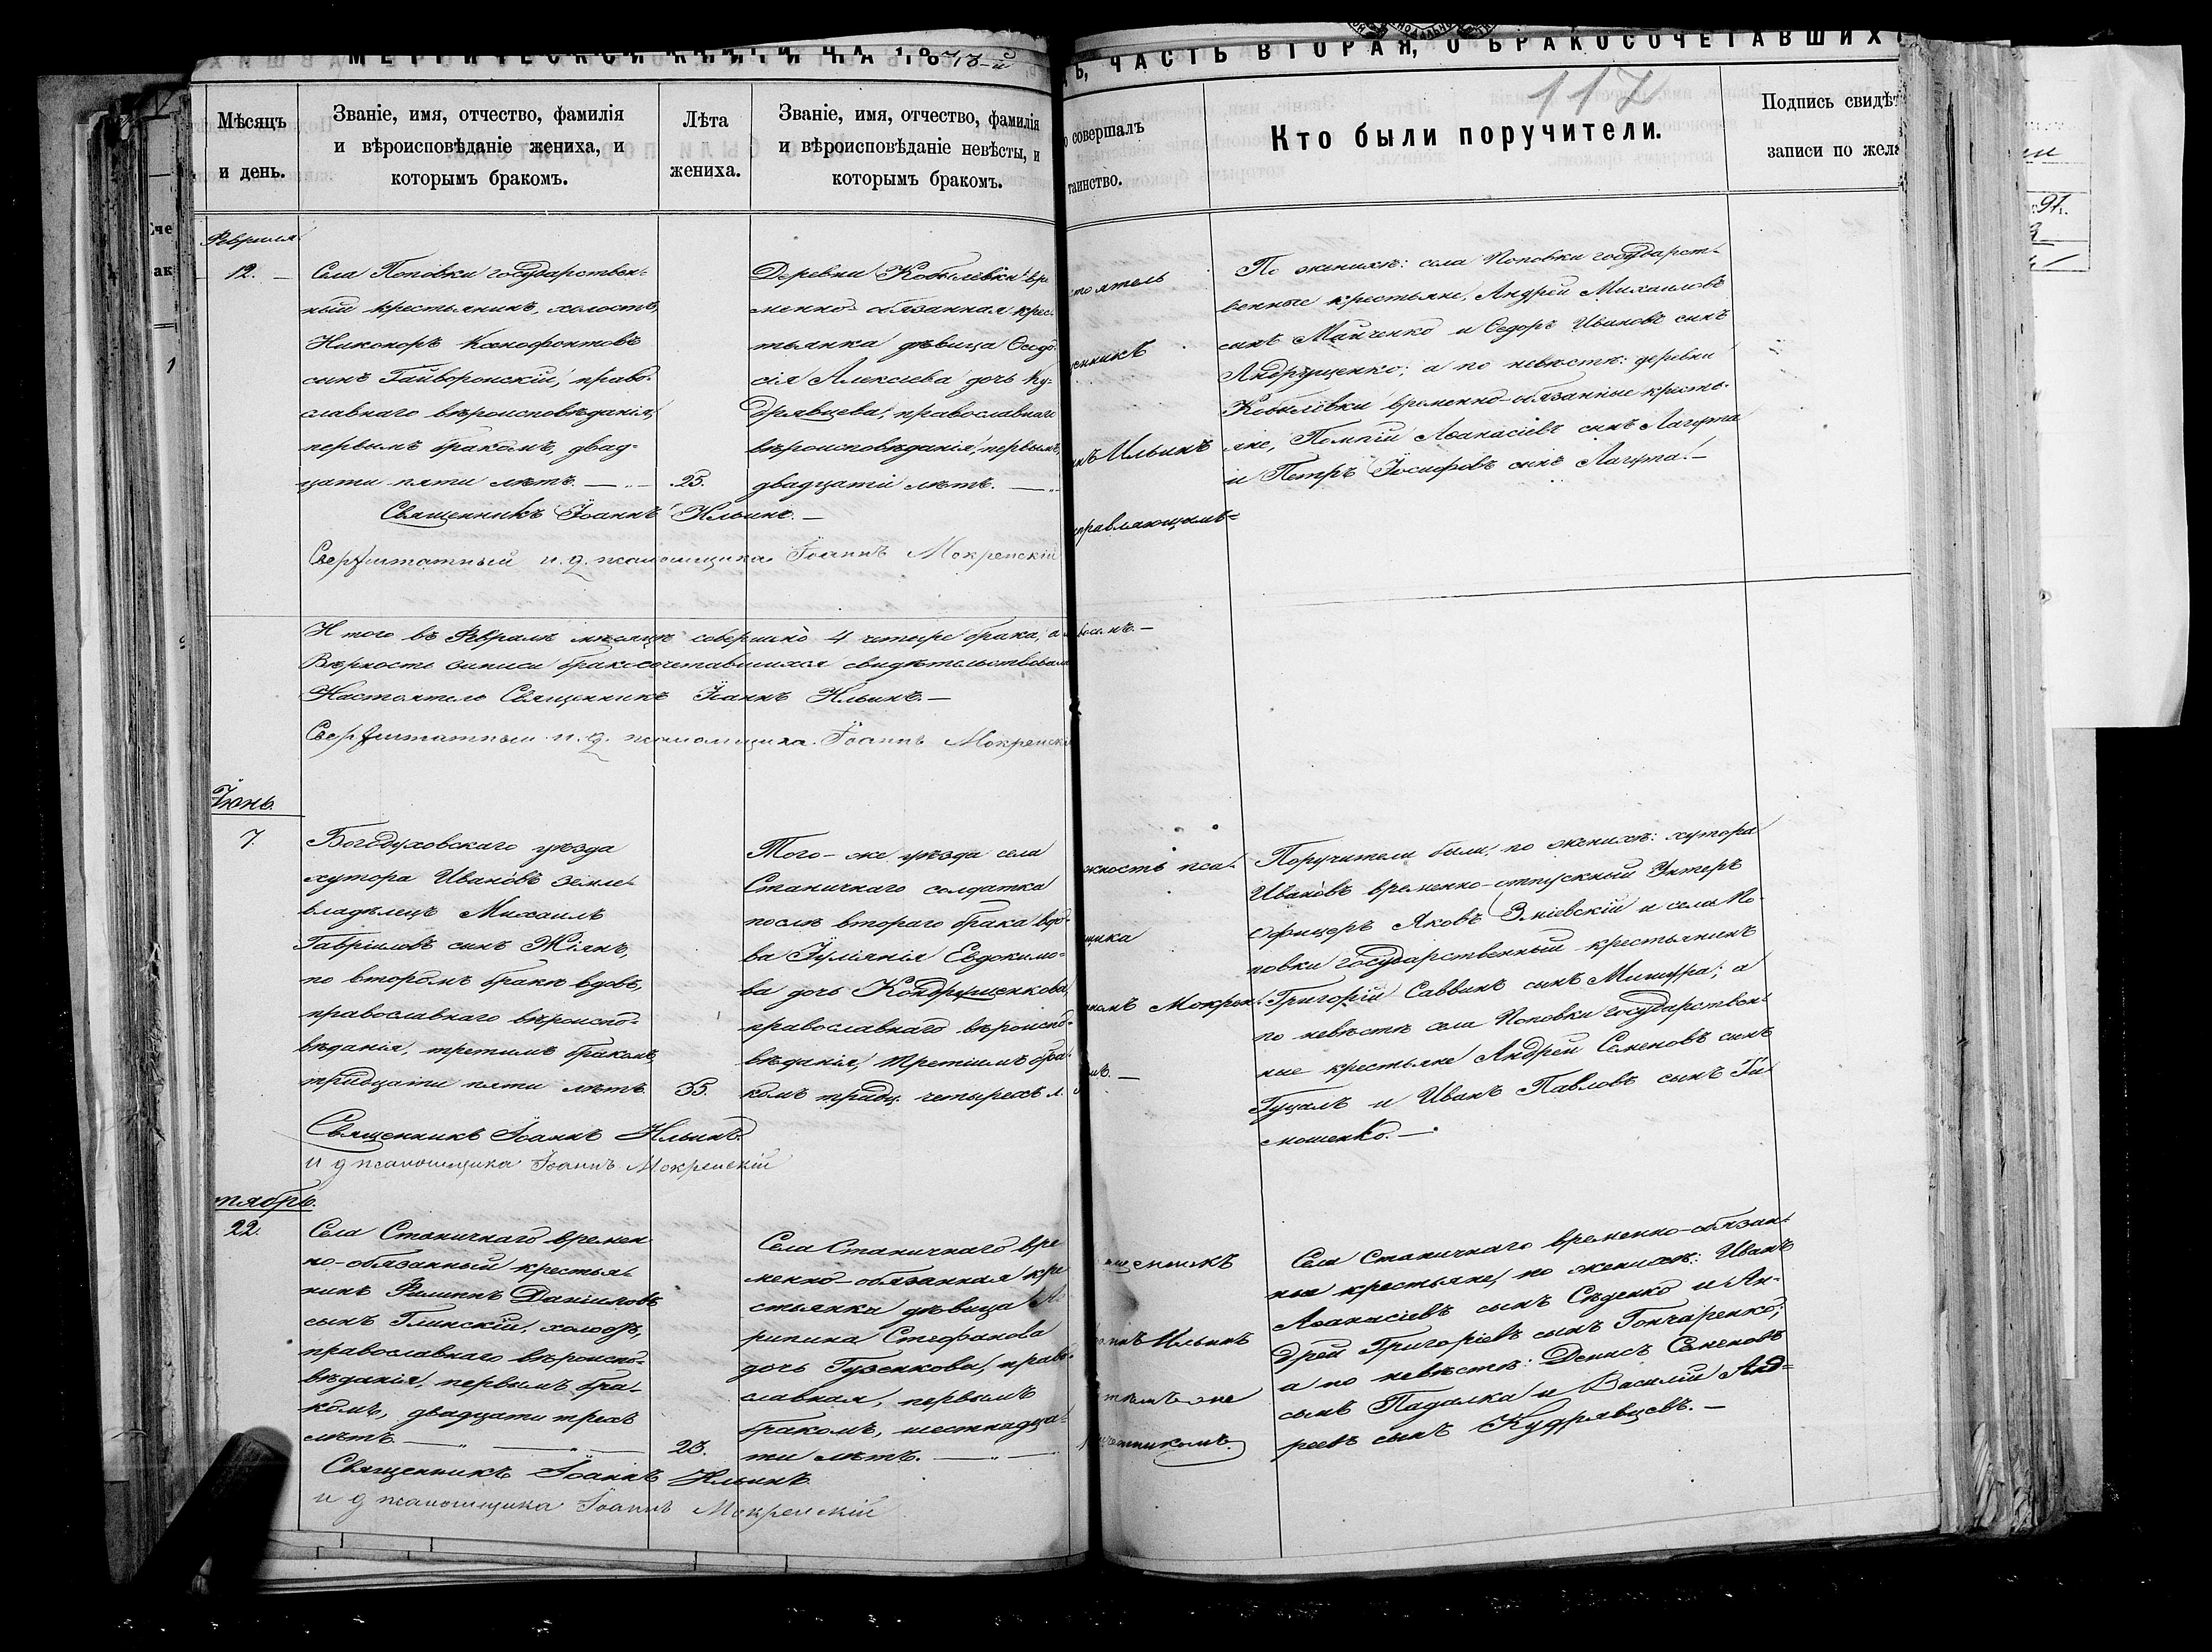 МЕТРИЧЕСКОЙ КНИГИ НА 1873-й
Ъ, ЧАСТЬ ВТОРАЯ, О БРАКОСОЧЕТАВШИХС
117
Мѣсяцъ
и день.
Званіе, имя, отчество, фамилія
и вѣроисповѣданіе жениха, и
которымъ бракомъ.
Лѣта
жениха.
Званіе, имя, отчество, фамилія
и вѣроисповѣданіе невѣсты, и
которымъ бракомъ.
о совершалъ
таинство.
Кто были поручители.
Подпись свидѣт
записи по жела
Февраля
12.
Села Поповки государствен-
ный крестьянинъ, холостъ,
Никоноръ Ксенофонтовъ
сынъ Гайворонскій, право-
славнаго вѣроисповѣданія,
первымъ бракомъ, двад-
цати пяти лѣтъ.
25.
Деревни Кобылевки вре
менно-обязанная крес-
тьянка дѣвица Ѳеодо-
сія Алексіева дочь Ку-
дрявцева, православнаго
вѣроисповѣданія, первымъ,
двадцати лѣтъ.
стоятель
щенникъ
нъ Ильинъ
справляющимъ
По женихѣ: села Поповки государст-
венные крестьяне, Андрей Михаиловъ
сынъ Майченко и Ѳедоръ Ивановъ сынъ
Андрущенко; а по невѣстѣ: деревни
Кобылевки временно-обязанные кресть-
яне, Помпій Аѳанасіевъ сынъ Лагута
и Петръ Іосифовъ сынъ Лагута.
Священникъ Іоаннъ Ильинъ.
Сверхштатный и. д. псаломщика Іоаннъ Мокренскій
Итого въ Февралѣ мѣсяцѣ совершено 4 четыре брака, а
Вѣрность записи бракосочетавшихся свидѣтельствовали
Настоятель Священникъ Іоаннъ Ильинъ.
Сверхштатный и. д. псаломщика Іоаннъ Мокренскі
Іюнь.
7.
Богодуховскаго уѣзда
хутора Ивановъ земле-
владѣлецъ Михаилъ
Гавріиловъ сынъ Жіянъ,
по второмъ бракѣ вдовъ,
православнаго вѣроиспо-
вѣданія, третимъ бракомъ
тридцати пяти лѣтъ.
35.
Того-же уѣзда села
Станичнаго солдатка
послѣ втораго брака вдо-
ва Іуліянія Евдокимо-
ва дочь Кондрущенкова,
православнаго вѣроиспо-
вѣданія, третіимъ бра-
комъ тридц. четырехъ л.
жность пса-
щика
номъ Мокрен-
Поручители были, по женихѣ: хутора
Ивановъ временно-отпускный Унтеръ
офицеръ Яковъ Зміевскій и села По-
повки государственный крестьянинъ
Григорій Саввинъ сынъ Мишура; а
по невѣстѣ села Поповки государствен-
ные крестьяне Андрей Семеновъ сынъ
Гуцалъ и Иванъ Павловъ сынъ Ти-
мошенко.
Священникъ Іоаннъ Ильинъ.
И д псаломщика Іоаннъ Мокренскій
тябрь.
22.
Села Станичнаго времен
но-обязанный крестья-
нинъ Филиппъ Даніиловъ
сынъ Глинскій, холостъ,
православнаго вѣроиспо-
вѣданія, первымъ бра-
комъ, двадцати трехъ
лѣтъ.
23.
Села Станичнаго вре
менно-обязанная кре
стьянка дѣвица Аг
рипина Стефанова
дочь Гузенкова, право-
славная, первымъ
бракомъ, шестнадца-
ти лѣтъ.
щенникъ
аннъ Ильинъ
тѣмъ же
четникомъ.
Села Станичнаго временно-обязан-
ные крестьяне, по женихѣ: Иванъ
Аѳанасіевъ сынъ Сѣденко и Ан-
дрей Григоріевъ сынъ Гончаренко;
а по невѣстѣ: Денисъ Семеновъ
сынъ Падалка и Василій Анд-
реевъ сынъ Кудрявцевъ.
Священникъ Іоаннъ Ильинъ.
и д псаломщика Іоаннъ Мокренскій